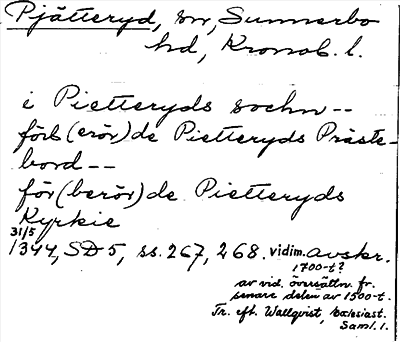 Pjätteryd, sn, Sunnerbo
hd, Kronob. l.
i Pietteryds sochn--
förb(erör)de Pietteryds Präste-
bord--
för(berör)de Pietteryds
Kyrkie
31/5
1344, SD 5, ss. 267, 268. vidim. avskr.
1700-t?
av vid. översättn. fr.
senare delen av 1500-t.
Tr. eft. Wallqvist, Ecclesiast.
Saml. 1.